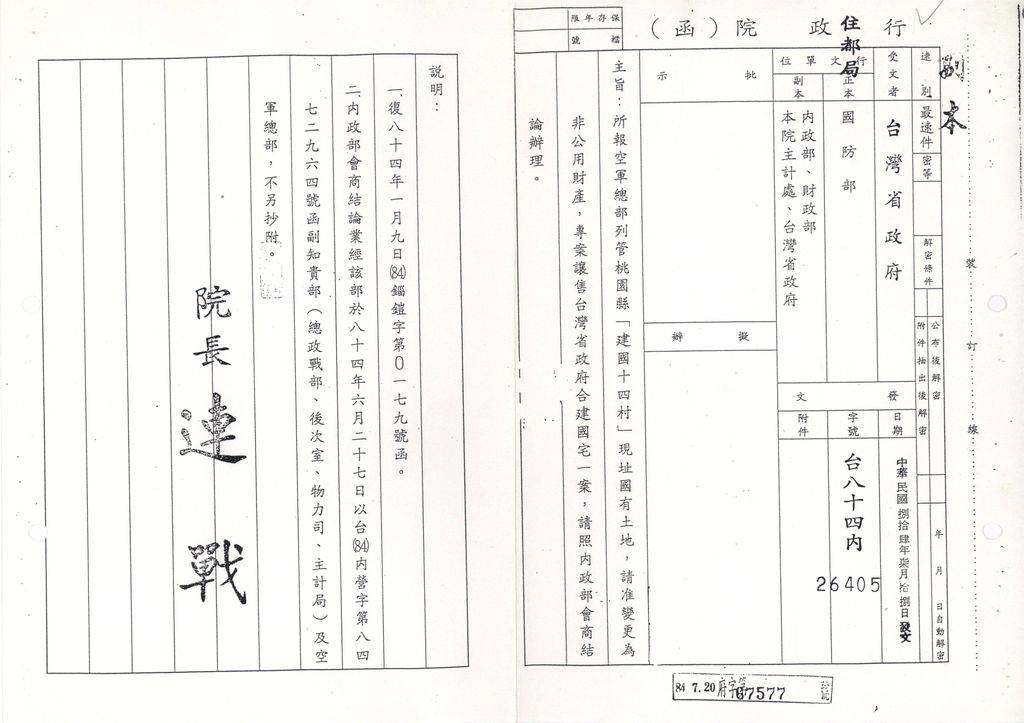 行政院（函）
住都局
副本
保存年限
檔號
速別
最速件
密等
解密條件
公布後解密
附件抽出後解密
年 月 日自動解密
受文者
台灣省政府
行文單位
正本
國防部
副本
內政部、財政部
本院主計處、台灣省政府
發文
日期
中華民國捌拾肆年柒月拾捌日發文
字號
台八十四內
26405
附件
批示
擬辦
主旨：所報空軍總部列管桃園縣「建國十四村」現址國有土地，請准變更為
非公用財產，專案讓售台灣省政府合建國宅一案，請照內政部會商結
論辦理。
說明：
一、復八十四年一月九日(84)鎦鎧字第0一七九號函。
二、內政部會商結論業經該部於八十四年六月二十七日以台(84)內營字第八四
七二九六四號函副知貴部（總政戰部、後次室、物力司、主計局）及空
軍總部，不另抄附。
院長 連戰
裝訂線
84 7.20 府字第67577